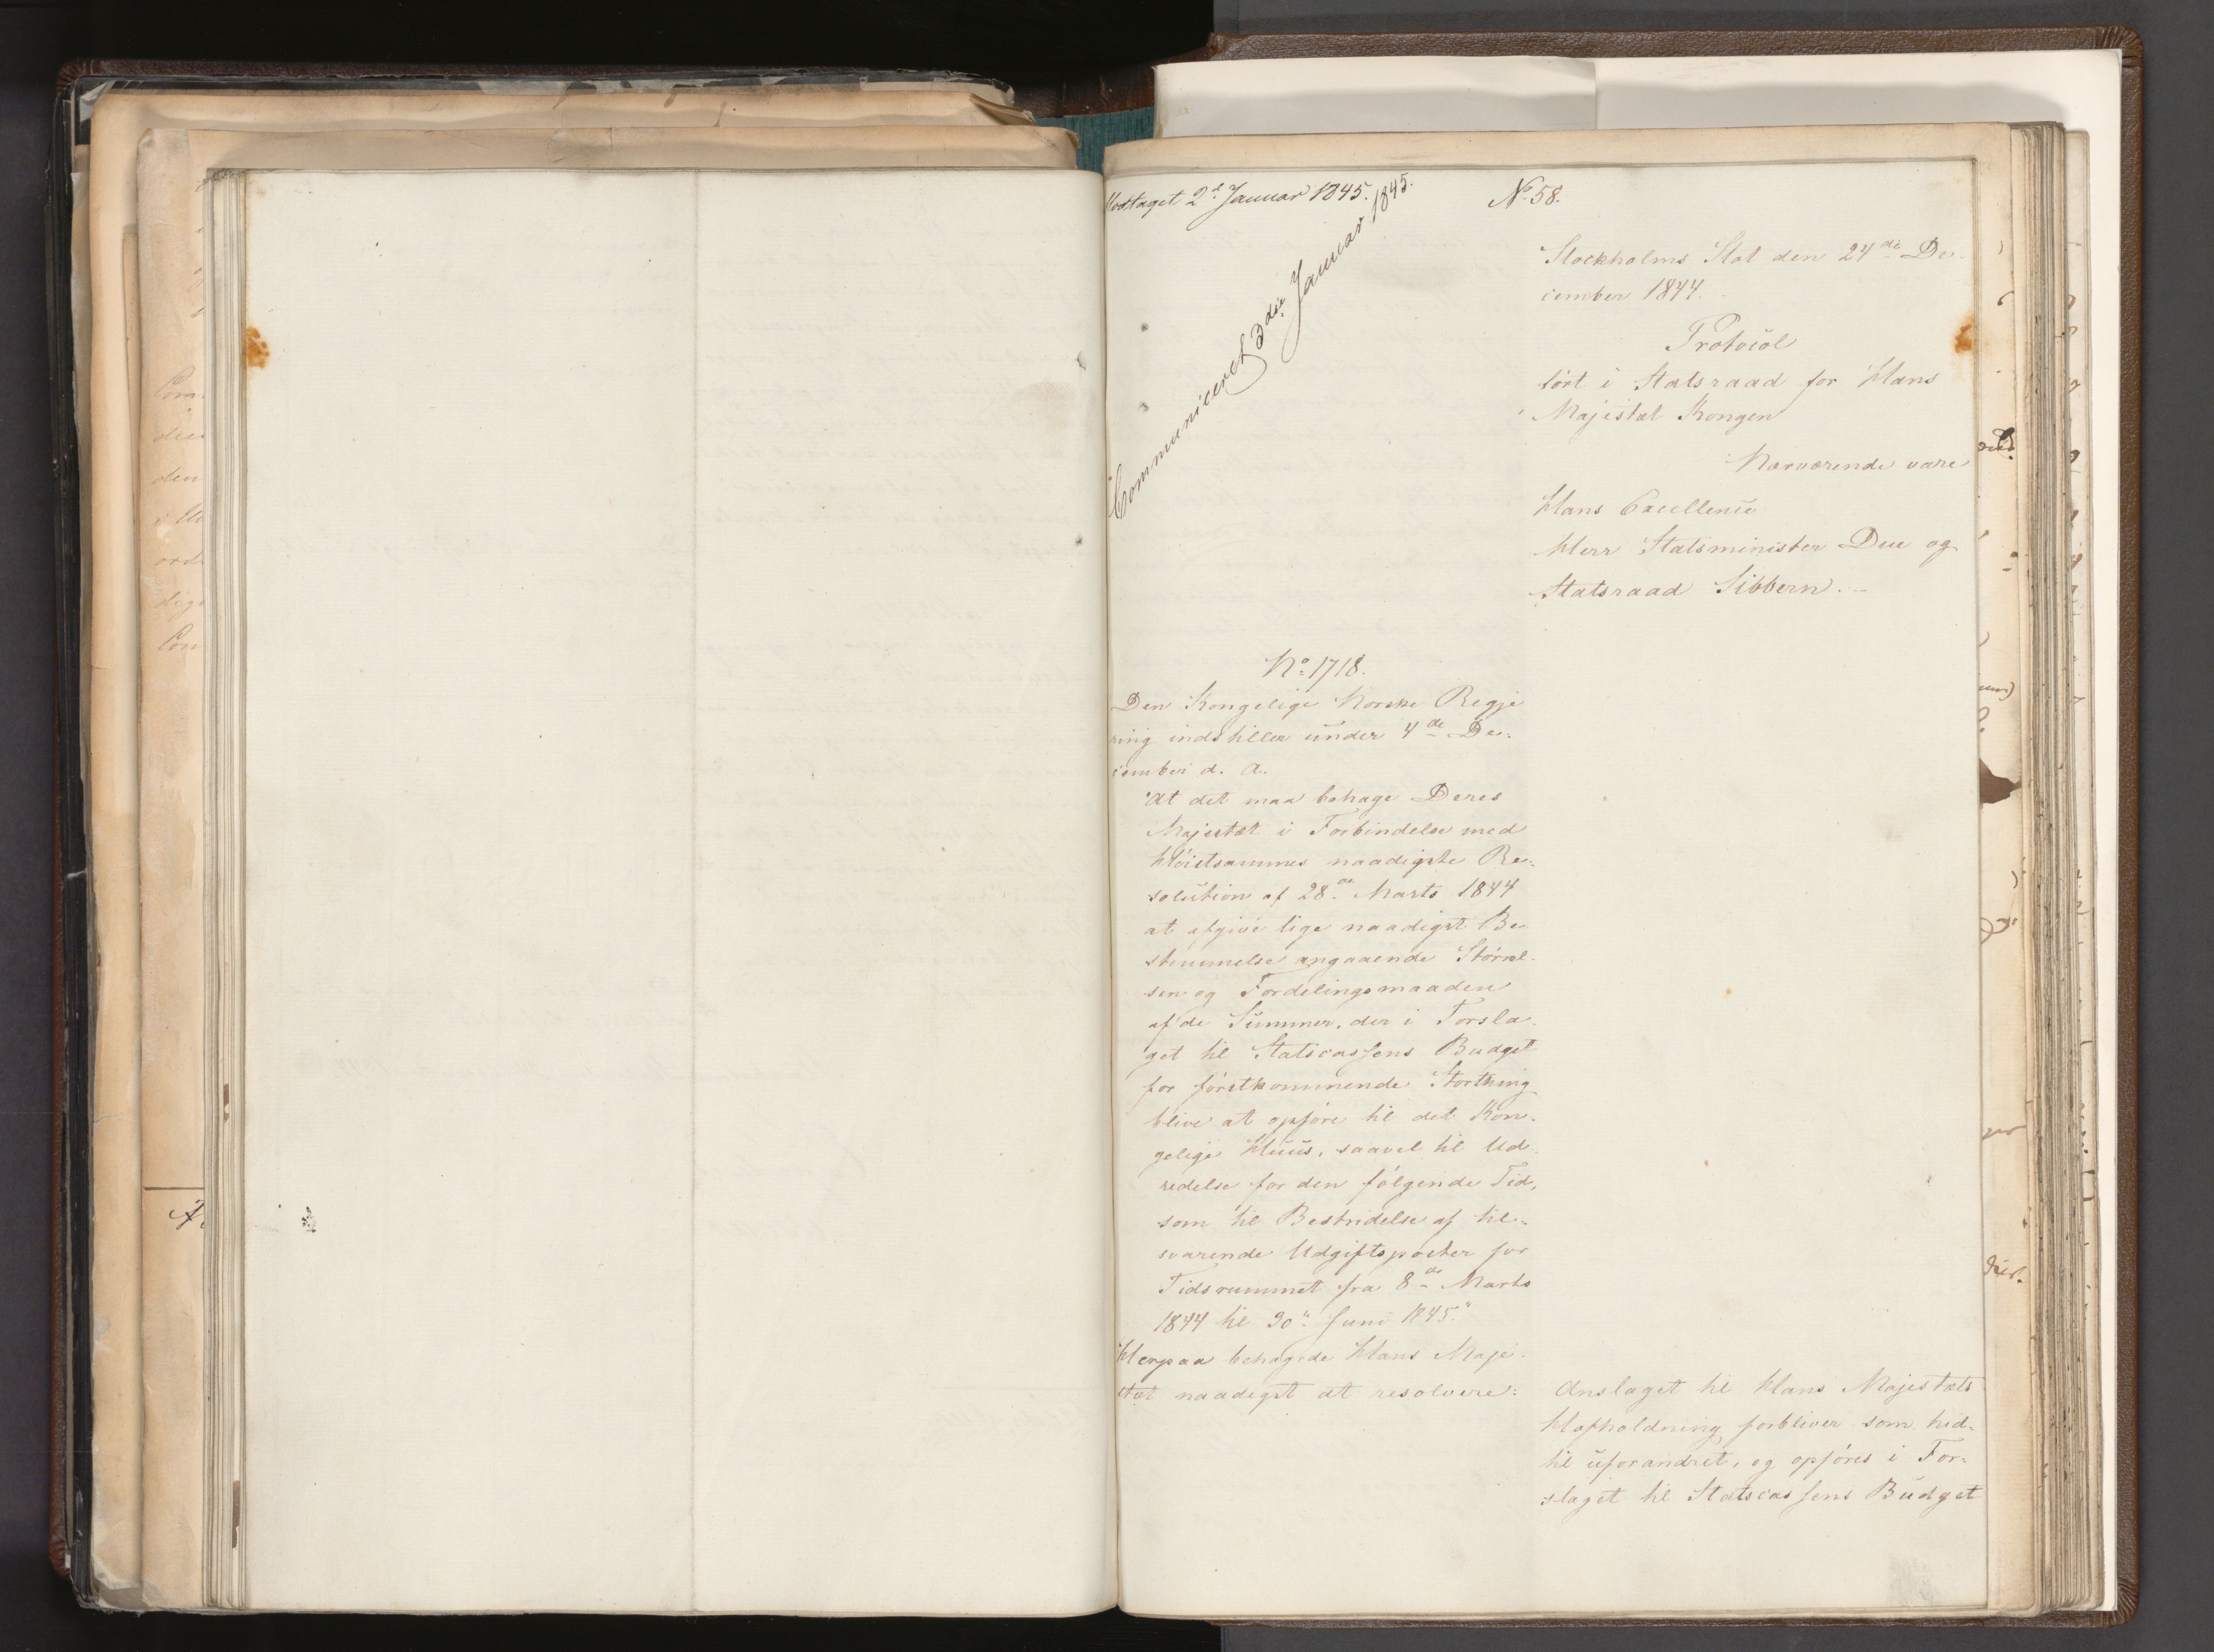 Modtaget 2d Januar 1845.
Communiceret 3die Januar 1845.
No 58.
Stockholms Slot den 24de De-
cember 1844.
Protocol
ført i Statsraad for Hans
Majestæt Kongen
Nærværende vare
Hans Excellence
Herr Statsminister Due og
Statsraad Sibbern.
No 1718.
Den Kongelige Norske Regje
ring indstiller under 4de De-
cember d. A.
"At det maa behage Deres
Majestæt i Forbindelse med
Høistsammes naadigste Re-
solution af 28de Marts 1844
at afgive lige naadigst Be
stemmelse angaaende Størrel-
sen og Fordelingsmaaden
af de Summer, der i Forsla-
get til Statscassens Budget
for førstkommende Storthing
blive at opføre til det Kon-
gelige Huus, saavel til Ud-
redelse for den følgende Tid,
som til Bestridelse af til-
svarende Udgiftsposter for
Tidsrummet fra 8de Marts
1844 til 30te Juni 1845."
Herpaa behagede Hans Maje-
stæt naadigst at resolvere:
Anslaget til Hans Majestæts
Hofholdning forbliver som hid-
til uforandret, og opføres i For-
slaget til Statscassens Budget